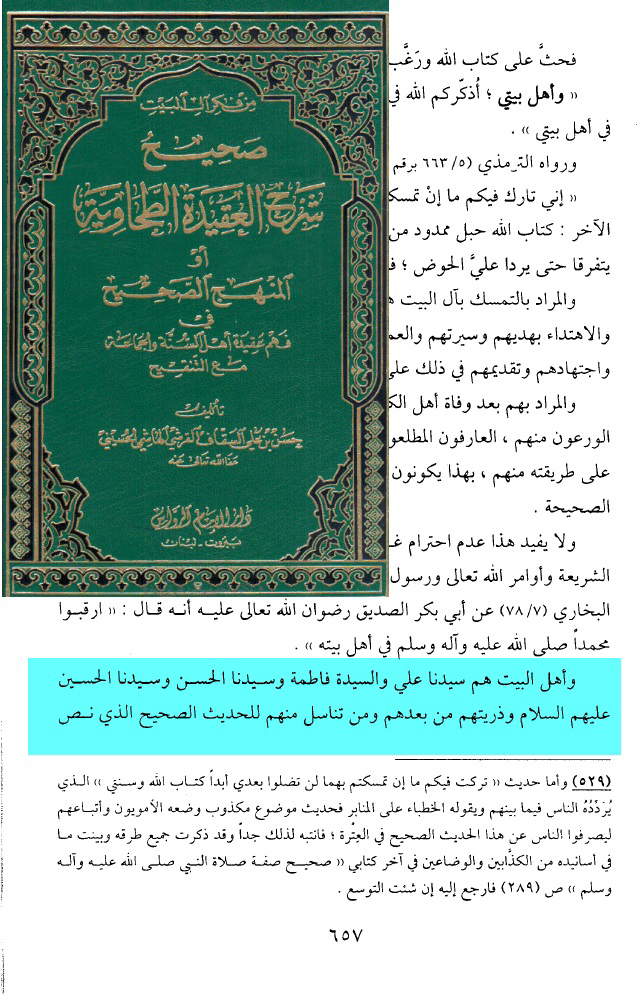 من فكر آل البيت
صحيح
شرح العقيدة الطحاوية
أو
المنهج الصحيح
في
فهم عقيدة أهل السنة والجماعة
مع التنقيح
تأليف
حسن بن علي السقاف القرشي الهاشمي الحسيني
عفا الله تعالى عنه
دار الإمام الرواس
بيروت - لبنان
فحثَّ على كتاب الله ورَغَّب
« وأهل بيتي ؛ أُذكّركم الله في
في أهل بيتي » .
ورواه الترمذي (٥/ ٦٦٣ برقم
« إني تارك فيكم ما إنْ تمسكـ
الآخر : كتاب الله حبل ممدود من
يتفرقا حتى يردا عليَّ الحوض ؛ فـ
والمراد بالتمسك بآل البيت
والاهتداء بهديهم وسيرتهم والعمـ
واجتهادهم وتقديمهم في ذلك على
والمراد بهم بعد وفاة أهل الكـ
الورعون منهم ، العارفون المطلعو
على طريقته منهم ، بهذا يكونون
الصحيحة .
ولا يفيد هذا عدم احترام غـ
الشريعة وأوامر الله تعالى ورسول
البخاري (٧/ ٧٨) عن أبي بكر الصديق رضوان الله تعالى عليه أنه قال : « ارقبوا
محمداً صلى الله عليه وآله وسلم في أهل بيته » .
وأهل البيت هم سيدنا علي والسيدة فاطمة وسيدنا الحسن وسيدنا الحسين
عليهم السلام وذريتهم من بعدهم ومن تناسل منهم للحديث الصحيح الذي نـص
(٥٢٩) وأما حديث « تركت فيكم ما إن تمسكتم بهما لن تضلوا بعدي أبداً كتاب الله وسنتي » الـذي
يُرَدِّدُهُ الناس فيما بينهم ويقوله الخطباء على المنابر فحديث موضوع مكذوب وضعه الأمويون وأتباعهم
ليصرفوا الناس عن هذا الحديث الصحيح في العِتْرة ؛ فانتبه لذلك جداً وقد ذكرت جميع طرقه وبينت مـا
في أسانيده من الكذَّابين والوضاعين في آخر كتابي « صحيـح صفـة صـلاة النبي صلى الله عليـه وآلـه
وسلم » ص (٢٨٩) فارجع إليه إن شئت التوسع .
٦٥٧